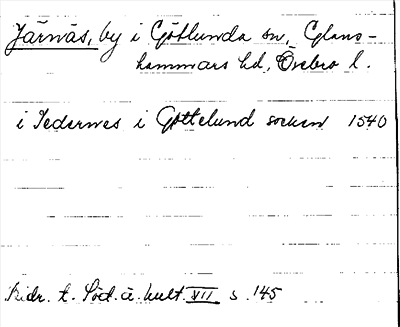 Järnäs, by i Götlunda sn, Glans-
hammars hd, Örebro l.
i Iedernes i Gøttelund socken 1540
Bidr. t. Söd. ä. kult. VII s. 145